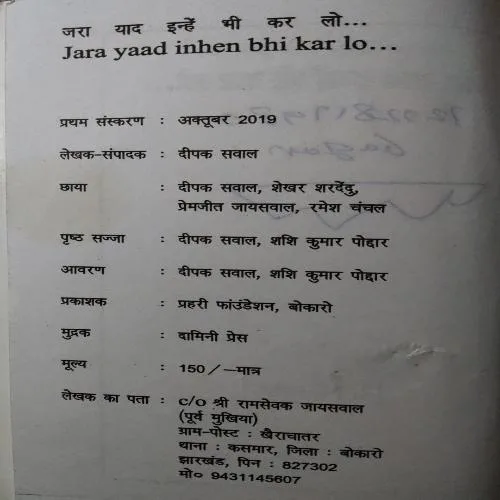 जरा याद इन्हें भी कर लो...
Jara yaad inhen bhi kar lo...
प्रथम संस्करण : अक्तूबर 2019
लेखक-संपादक : दीपक सवाल
छाया : दीपक सवाल, शेखर शरदेंदु,
प्रेमजीत जायसवाल, रमेश चंचल
पृष्ठ सज्जा : दीपक सवाल, शशि कुमार पोद्दार
आवरण : दीपक सवाल, शशि कुमार पोद्दार
प्रकाशक : प्रहरी फांउंडेशन, बोकारो
मुद्रक : दामिनी प्रेस
मूल्य : 150/-मात्र
लेखक का पता : c/o श्री रामसेवक जायसवाल
(पूर्व मुखिया)
ग्राम-पोस्ट : खैराचातर
थाना : कसमार, जिला : बोकारो
झारखंड, पिन : 827302
मो० 9431145607